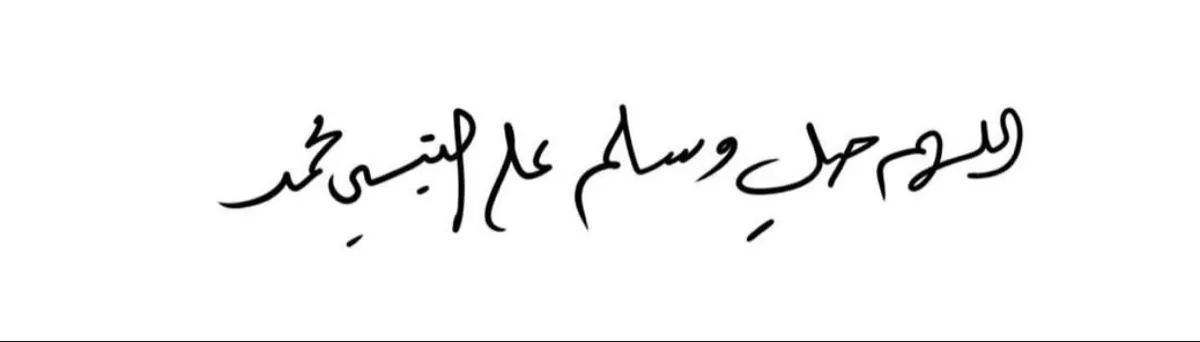 اللهم صل وسلم على النبي محمد